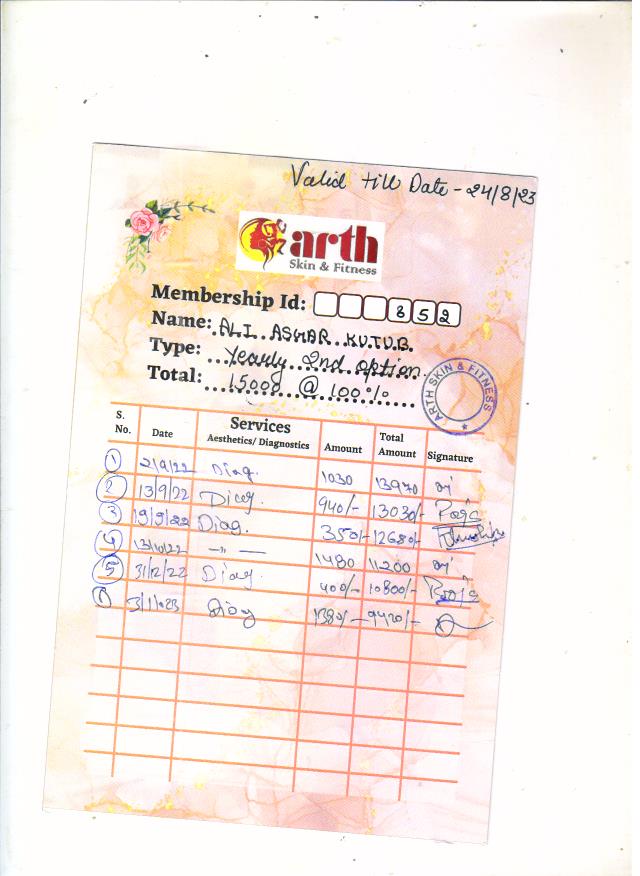 Valid till Date - 24/8/23
arth
Skin & Fitness
Membership Id: 852
Name: ALI ASGAR KUTUB.
Type: Yearly 2nd option.
Total: 15000 @ 100%
ARTH SKIN & FITNESS
S. No. Date Services Aesthetics/ Diagnostics Amount Total Amount Signature
1 2/9/22 Diag. 1030 13970
2 13/9/22 Diag. 940/- 13030/- Pooja
3 19/9/22 Diag. 350/- 12680/-
4 13/10/22 -"- 1480 11200
5 31/12/22 Diag. 400/- 10800/- Pooja
6 3/1/23 Diag 1380/- 9420/-